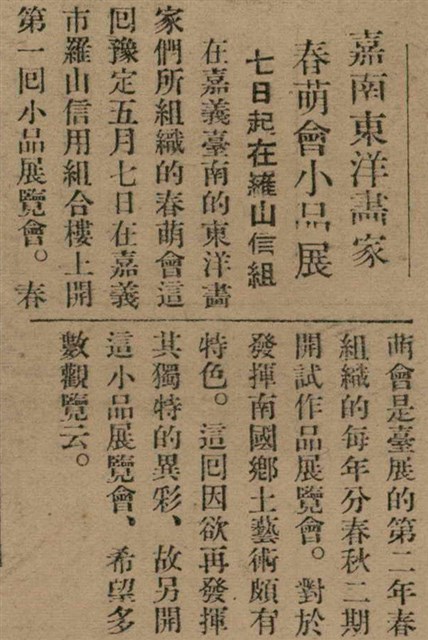 嘉南東洋畵家
春萌會小品展
七日起在羅山信組
在嘉義臺南的東洋畵
家們所組織的春萌會這
回豫定五月七日在嘉義
市羅山信用組合樓上開
第一回小品展覽會。春
萌會是臺展的第二年春
組織的每年分春秋二期
開試作品展覽會。對於
發揮南國鄉土藝術頗有
特色。這回因欲再發揮
其獨特的異彩、故另開
這小品展覽會、希望多
數觀覽云。